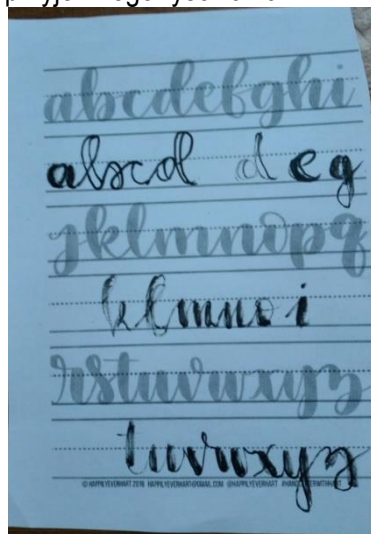 abcdefghi
abcd d e g
jklmnopq
klmno i
rstuvwxyz
tuvwxyz
© HAPPILYEVERHART 2016 HAPPILYEVERHART@GMAIL.COM @HAPPILYEVERHART